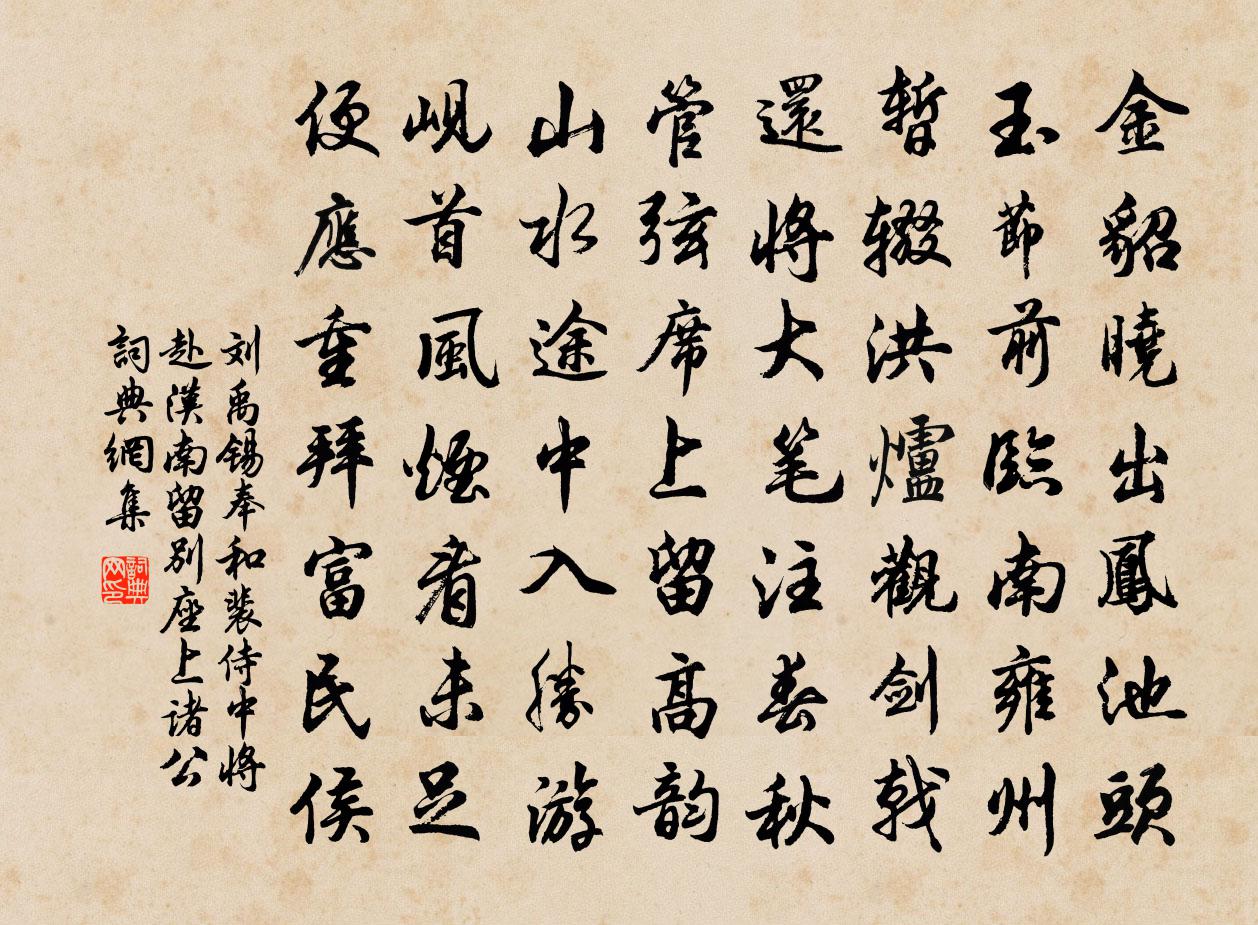 金貂曉出鳳池頭
玉節前臨南雍州
暫辍洪爐觀劍戟
還將大笔注春秋
管弦席上留高韵
山水途中入勝游
峴首風煙看未足
便應重拜富民侯
刘禹锡奉和裴侍中將
赴漢南留別座上诸公
詞典網集
詞典网印